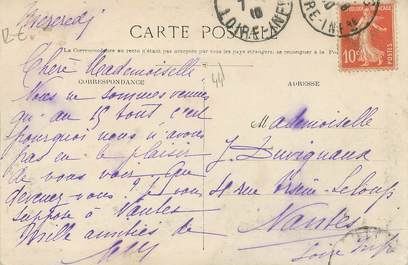 Mercredi
CARTE POSTALE
La Correspondance au recto n'est pas acceptée par tous les pays étrangers, se renseigner à la Poste
CORRESPONDANCE
ADRESSE
Chère Mademoiselle
Nous ne sommes venues
qu'au 15 août c'est
pourquoi nous n'avons
pas eu le plaisir
de vous voir, que
devenez vous? Je vous
suppose à Nantes
Mille amitiés de
Mademoiselle
J. Duvignaux
rue
Nantes
Loire Infre
10c
POSTES
7
10
LOIRE-INF